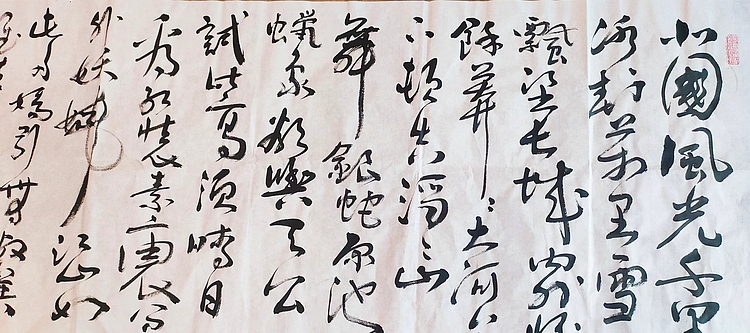 北國風光千里
冰封萬里雪
飄望長城內外惟
餘莽〻大河上
下頓失滔〻山
舞銀蛇原馳
蠟象欲與天公
試比高須晴日
看紅裝素裹分
外妖嬈江山如
此多嬌引無數英